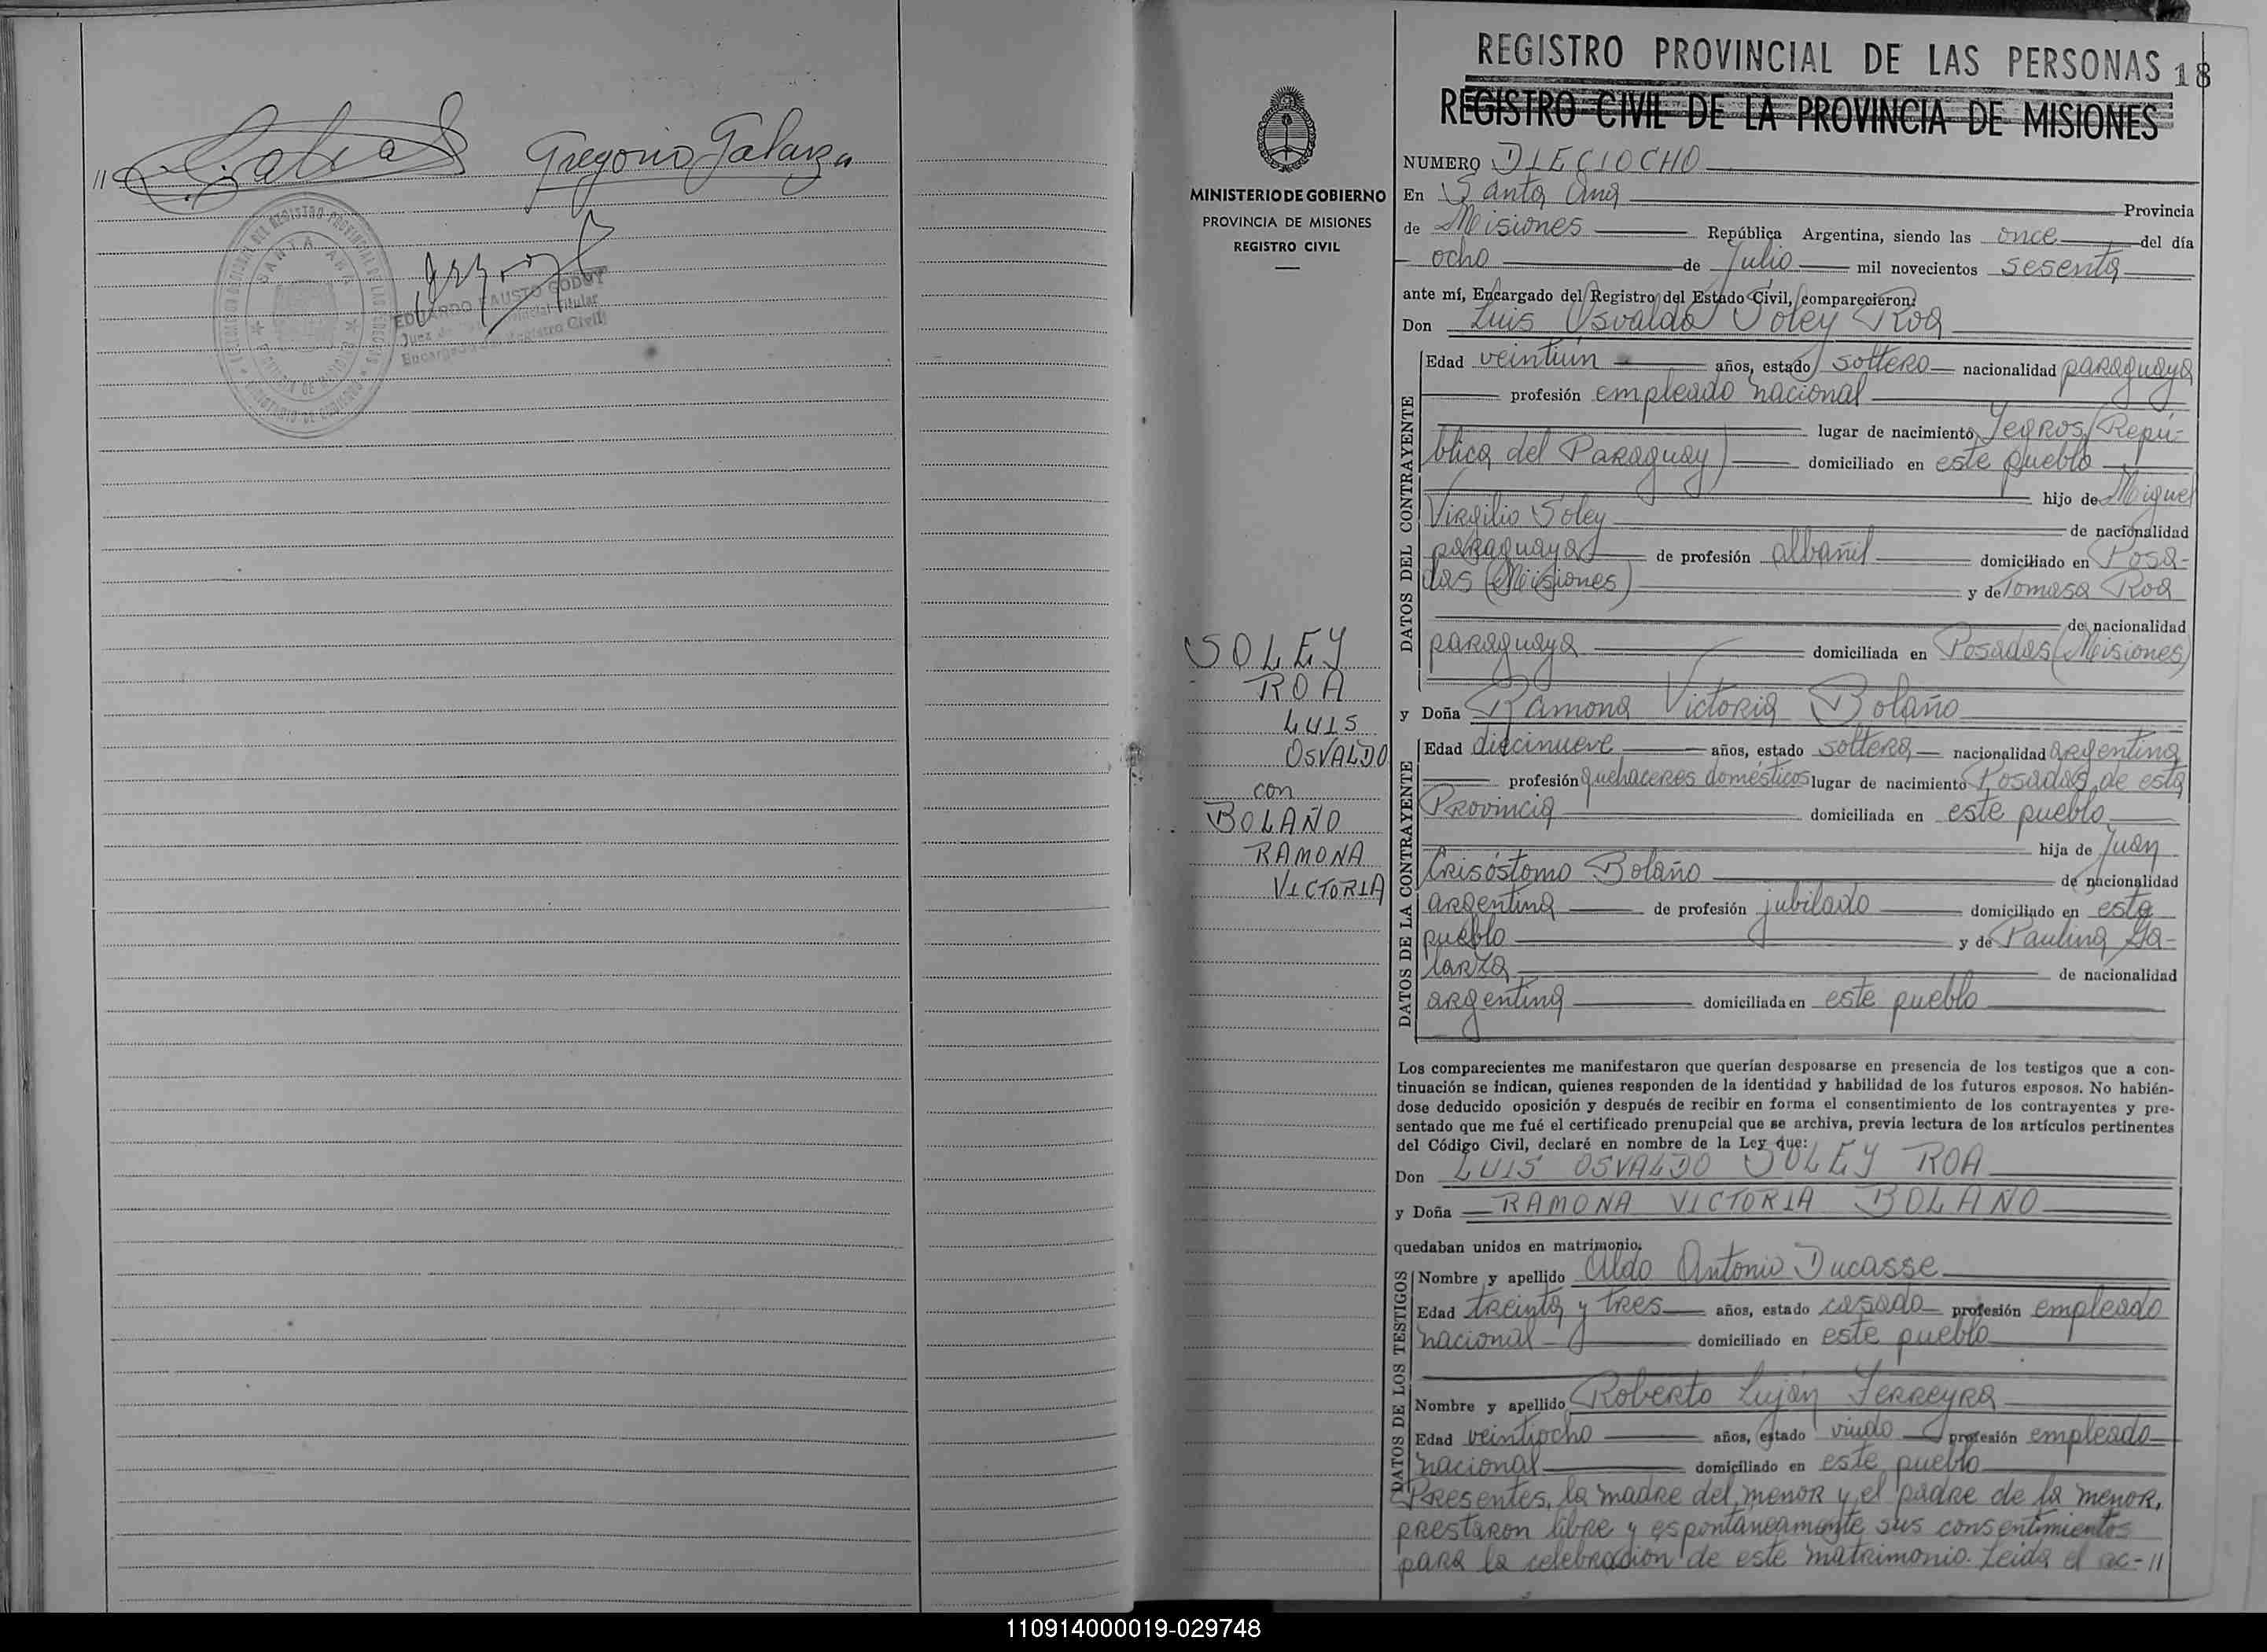 Gregorio Galarza
SANTA ANA
EDUARDO FAUSTO GODOY
Encargado del Registro Civil
MINISTERIO DE GOBIERNO
PROVINCIA DE MISIONES
REGISTRO CIVIL
SOLEY
ROA
LUIS
OSVALDO
con
BOLAÑO
RAMONA
VICTORIA
REGISTRO PROVINCIAL DE LAS PERSONAS 18
REGISTRO CIVIL DE LA PROVINCIA DE MISIONES
NUMERO DIECIOCHO
En Santa Ana Provincia
de Misiones República Argentina, siendo las once del día
ocho de Julio mil novecientos sesenta
ante mí, Encargado del Registro del Estado Civil, comparecieron:
Don Luis Osvaldo Soley Roa
DATOS DEL CONTRAYENTE
Edad veintiún años, estado soltero nacionalidad paraguaya
profesión empleado nacional
lugar de nacimiento Yegros (Repú-
blica del Paraguay) domiciliado en este pueblo
hijo de Miguel
Virgilio Soley de nacionalidad
paraguaya de profesión albañil domiciliado en Posa-
das (Misiones) y de Tomasa Roa
de nacionalidad
paraguaya domiciliada en Posadas (Misiones)
y Doña Ramona Victoria Bolaño
DATOS DE LA CONTRAYENTE
Edad diecinueve años, estado soltera nacionalidad argentina
profesión quehaceres domésticos lugar de nacimiento Posadas, de esta
Provincia domiciliada en este pueblo
hija de Juan
Crisóstomo Bolaño de nacionalidad
argentina de profesión jubilado domiciliado en este
pueblo y de Paulina Ga-
larza de nacionalidad
argentina domiciliada en este pueblo
Los comparecientes me manifestaron que querían desposarse en presencia de los testigos que a con-
tinuación se indican, quienes responden de la identidad y habilidad de los futuros esposos. No habién-
dose deducido oposición y después de recibir en forma el consentimiento de los contrayentes y pre-
sentado que me fué el certificado prenupcial que se archiva, previa lectura de los artículos pertinentes
del Código Civil, declaré en nombre de la Ley que:
Don LUIS OSVALDO SOLEY ROA
y Doña RAMONA VICTORIA BOLAÑO
quedaban unidos en matrimonio.
DATOS DE LOS TESTIGOS
Nombre y apellido Aldo Antonio Ducasse
Edad treinta y tres años, estado casado profesión empleado
nacional domiciliado en este pueblo
Nombre y apellido Roberto Luján Ferreyra
Edad veintiocho años, estado viudo profesión empleado
nacional domiciliado en este pueblo
Presentes, la madre del menor y el padre de la menor,
prestaron libre y espontáneamente sus consentimientos
para la celebración de este matrimonio. Leída el ac-//
110914000019-029748